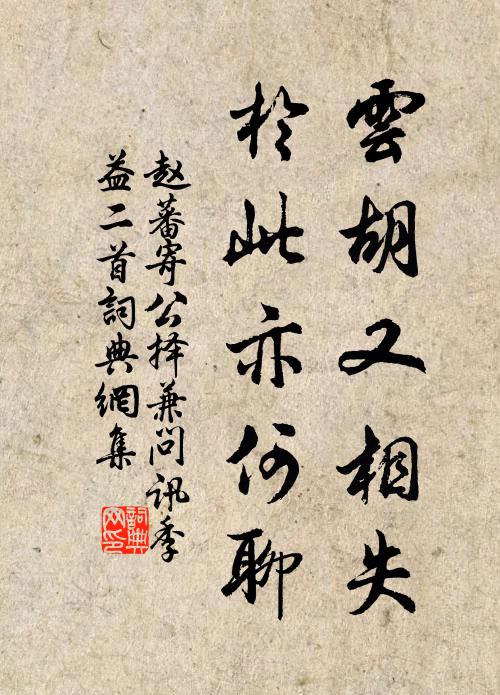 雲胡又相失
於此亦何聊
赵蕃寄公择兼问讯季
益二首詞典網集
詞典
网印